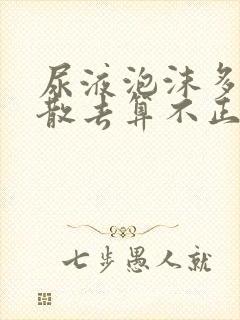 尿液泡沫多
散去算不正
七步愚人就